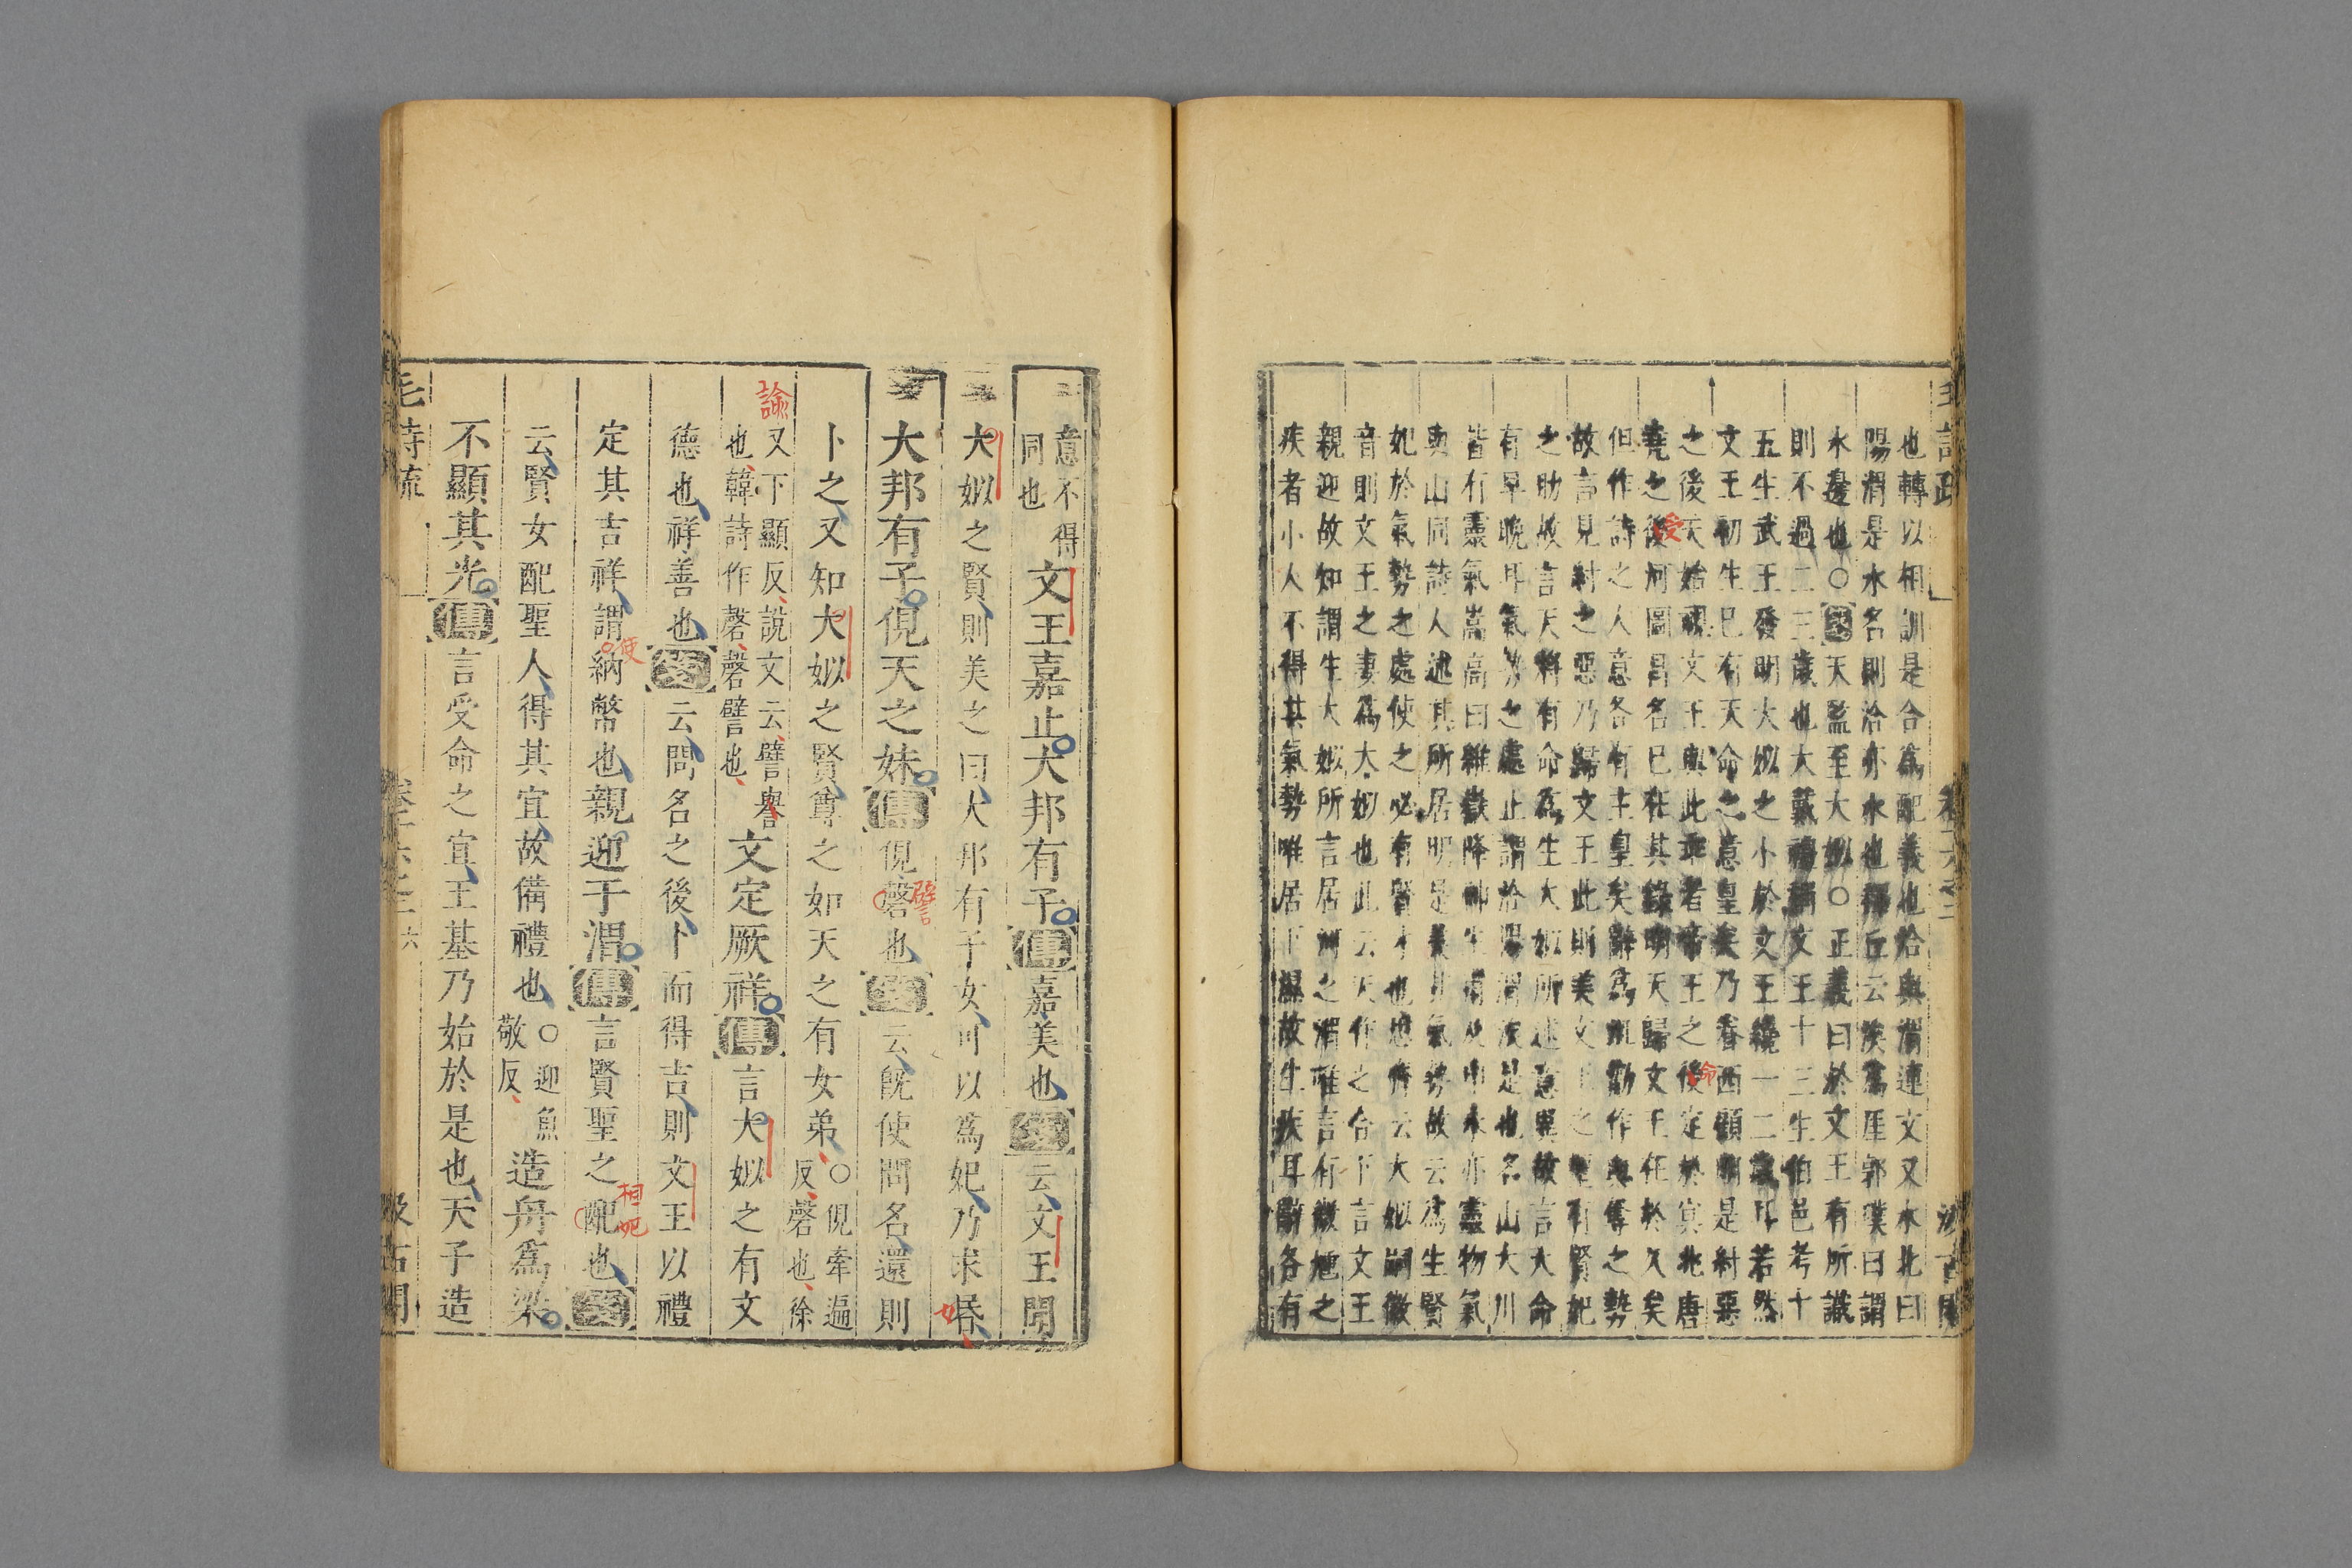 也轉以相訓是合爲配義也洽與渭連文又水北曰
陽渭是水名則洽亦水也釋丘云涘爲厓郭璞曰謂
水邊也○疏天監至大姒○正義曰於文王有所識
則不過二三歲也大戴禮稱文王十三生伯邑考十
五生武王發明大姒之小於文王纔一二歲耳若然
文王初生已有天命之意皇矣乃眷西顧明是紂惡
之後天始視文王與此乖者帝王之後定於冥兆唐
堯之後河圖昌名已在其錄明天歸文王在於久矣
但作詩之人意各有主皇矣辭爲
故言見紂之惡乃歸文王此則美文王之聖有賢妃
之助故言天將有命爲生大姒所述意異故言大命
有早晚耳氣勢之處止謂洽陽渭涘是也名山大川
皆有靈氣嵩高曰維嶽降神生甫及申水亦靈物氣
與山同詩人述其所居明是美其氣勢故云爲生賢
妃於氣勢之處使之必有賢才也
音則文王之妻爲大姒也此云天作之合下言文王
親迎故知謂生大姒所言居河之渭唯言有徵尰之
疾者小人不得其氣勢唯居下濕故生疾耳辭各有
意不得
同也
文王嘉止大邦有子傳嘉美也箋云文王聞
大姒之賢則美之曰大邦有子女可以爲妃乃求昏
大邦有子俔天之妹傳俔磬也箋云旣使問名還則
卜之又知大姒之賢尊之如天之有女弟○俔牽遍反磬也徐
又下顯反說文云譬譽
也韓詩作磬磬譬也
文定厥祥傳言大姒之有文
德也祥善也箋云問名之後卜而得吉則文王以禮
定其吉祥謂納幣也親迎于渭傳言賢聖之配也箋
云賢女配聖人得其宜故備禮也○迎魚敬反造舟爲梁
不顯其光傳言受命之宜王基乃始於是也天子造
諭
譬
使
相妃
女
受
命
毛詩疏
六